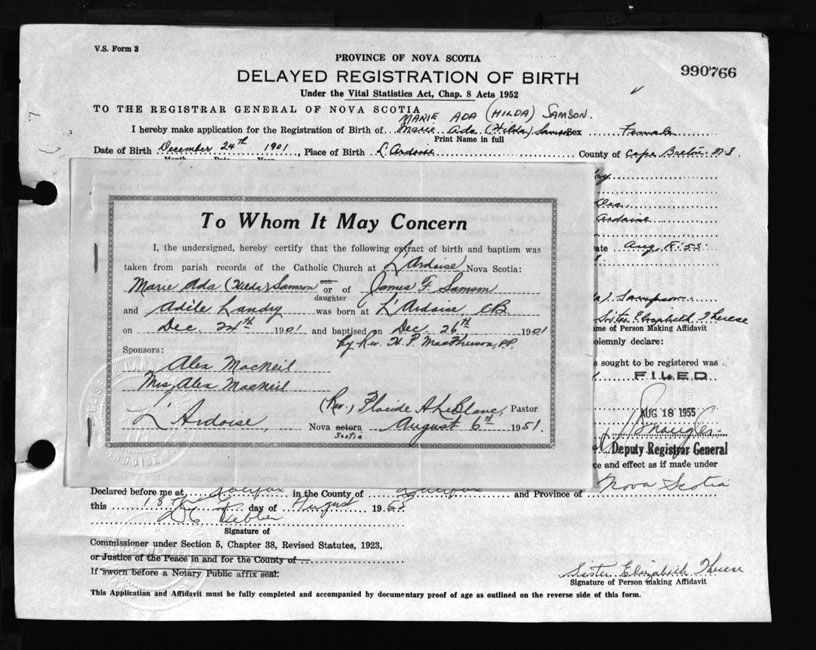 V.S. Form 3
PROVINCE OF NOVA SCOTIA
990766
DELAYED REGISTRATION OF BIRTH
Under the Vital Statistics Act, Chap. 8 Acts 1952
TO THE REGISTRAR GENERAL OF NOVA SCOTIA
MARIE ADA (HILDA) SAMSON.
I hereby make application for the Registration of Birth of Marie Ada (Hilda) Samson Sex Female
Print Name in full
Date of Birth December 24th 1901, Place of Birth L'Ardoise County of Cape Breton N.S.
Month Day Year
To Whom It May Concern
I, the undersigned, hereby certify that the following extract of birth and baptism was
taken from parish records of the Catholic Church at L'Ardoise Nova Scotia:
Marie Ada (Hilda) Samson son or daughter of James F. Samson
and Adile Landry was born at L'Ardoise CB
on Dec. 24th 1901 and baptised on Dec. 26th 1901
by Rev. H. P. MacPherson, PP.
Sponsors:
Alex MacNeil
Mrs. Alex MacNeil
(Rev.) Placide A. LeBlanc, Pastor
L'Ardoise, Nova Scotia August 6th 1951.
ardoise
ate Aug 18:55
Sister Elizabeth Therese
me of Person Making Affidavit
olemnly declare:
sought to be registered was
FILED
AUG 18 1955
Deputy Registrar General
ce and effect as if made under
Declared before me at Halifax in the County of Halifax and Province of Nova Scotia
this 18th day of August 196
Signature of
Commissioner under Section 5, Chapter 38, Revised Statutes, 1923,
or Justice of the Peace in and for the County of
If sworn before a Notary Public affix seal.
Sister Elizabeth Therese
Signature of Person making Affidavit
This Application and Affidavit must be fully completed and accompanied by documentary proof of age as outlined on the reverse side of this form.